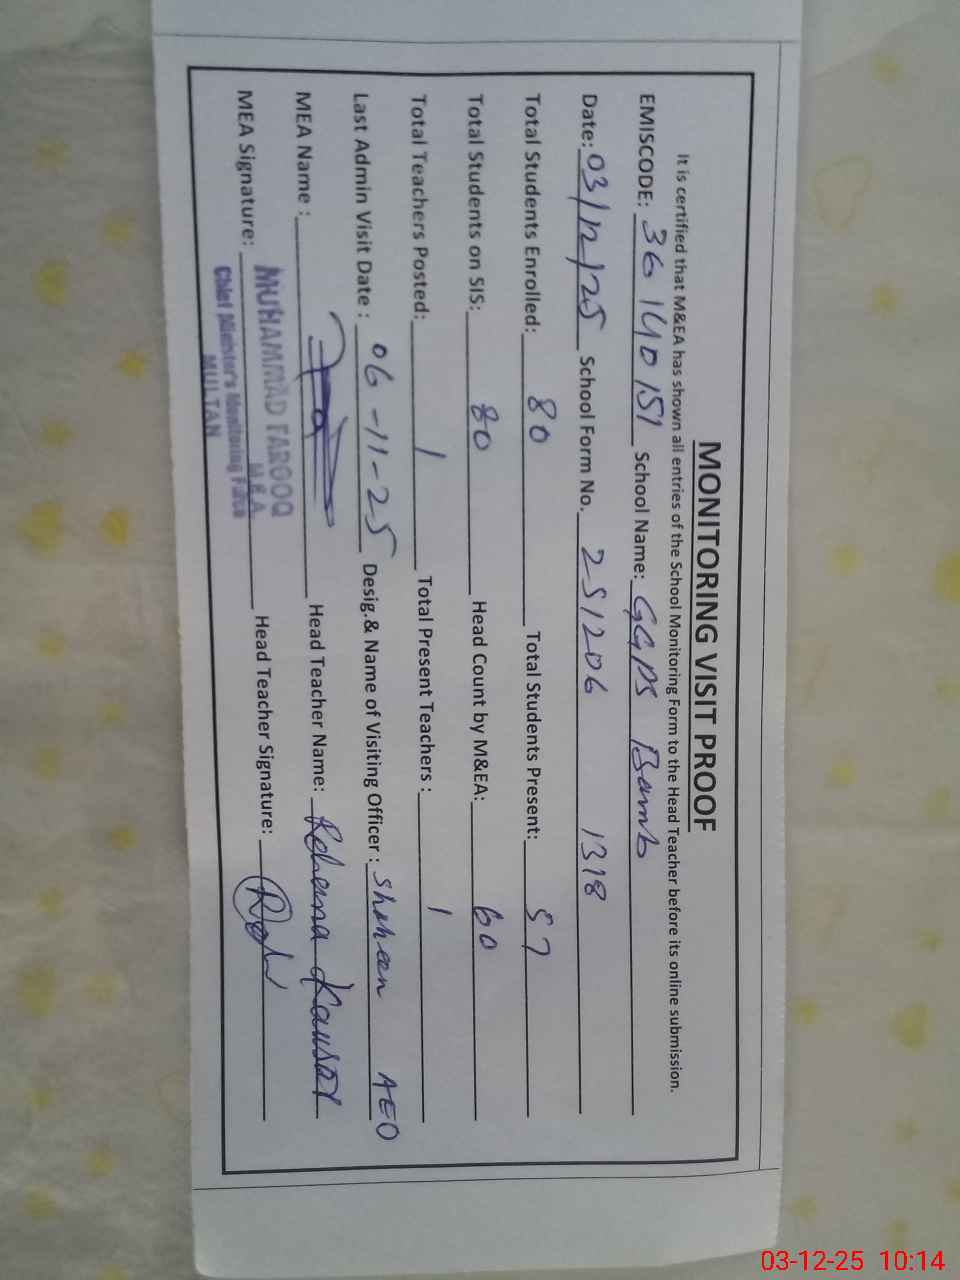 MONITORING VISIT PROOF
It is certified that M&EA has shown all entries of the School Monitoring Form to the Head Teacher before its online submission.
EMISCODE: 36140151 School Name: GGPS
Date: 03/12/25 School Form No. 251206 1318
Total Students Enrolled: 80 Total Students Present: 57
Total Students on SIS: 80 Head Count by M&EA: 60
Total Teachers Posted: 1 Total Present Teachers : 1
Last Admin Visit Date : 06-11-25 Desig.& Name of Visiting Officer : Shaheen AEO
MEA Name : Head Teacher Name: Rehana Kausar
MEA Signature: Head Teacher Signature:
MUHAMMAD FAROOQ
M.E.A
Chief Minister's Monitoring Force
MULTAN
03-12-25 10:14